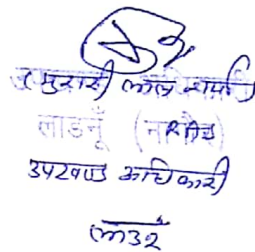 मुरारी लाल शर्मा
लाडनूँ (नागौर)
RAS
उपखण्ड अधिकारी
लाडनूं